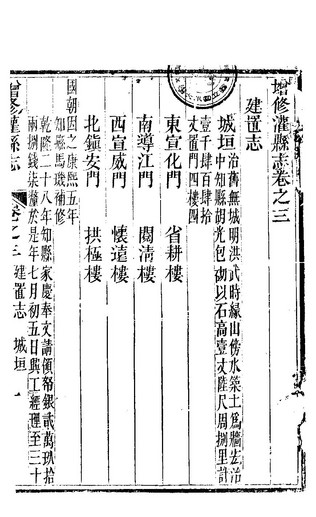 增修灌縣志卷之三
建置志
城垣治舊無城明洪武時緣山傍水築土為牆宏治
中知縣胡光包砌以石高壹丈陸尺周捌里計
壹千肆百肆拾
丈置門四樓四
東宣化門 省耕樓
南導江門 閱清樓
西宣威門 懷遠樓
北鎮安門 拱極樓
國朝因之康熙五年
知縣馬璣補修
乾隆二十八年知縣家慶奉文請領帑銀貳萬玖拾
兩捌錢柒釐於是年七月初五日興工經理至三十
增修灌縣志
卷之三 建置志 城垣 一